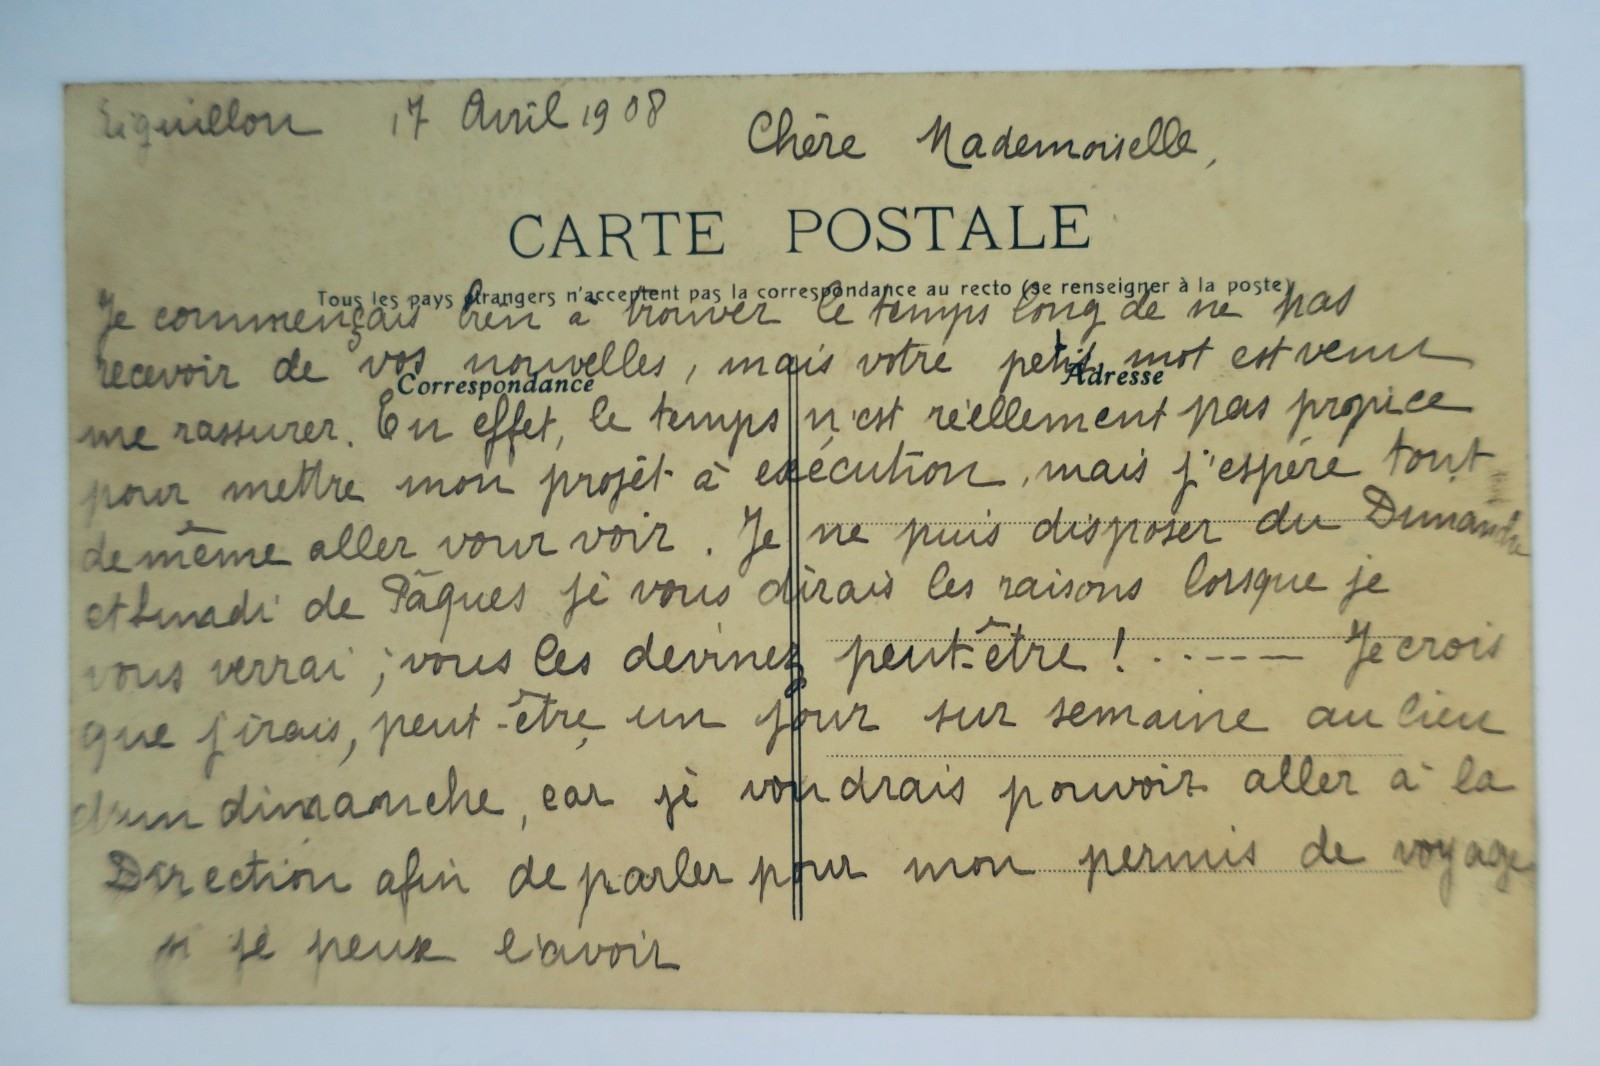 Eiguillon 17 Avril 1908
Chère Mademoiselle,
CARTE POSTALE
Tous les pays étrangers n'acceptent pas la correspondance au recto (se renseigner à la poste)
Je commençais bien à trouver le temps long de ne pas
recevoir de vos nouvelles, mais votre petit mot est venu
Correspondance
Adresse
me rassurer. En effet, le temps n'est réellement pas propice
pour mettre mon projêt à exécution, mais j'espère tout
de même aller vour voir. Je ne puis disposer du Dimanche
et Lundi de Pâques je vous dirais les raisons lorsque je
vous verrai ; vous les devinez peut-être ! . . - - - - Je crois
que j'irais, peut-être un jour sur semaine au lieu
d'un dimanche, car je voudrais pouvoir aller à la
Direction afin de parler pour mon permis de voyage
si je peux l'avoir